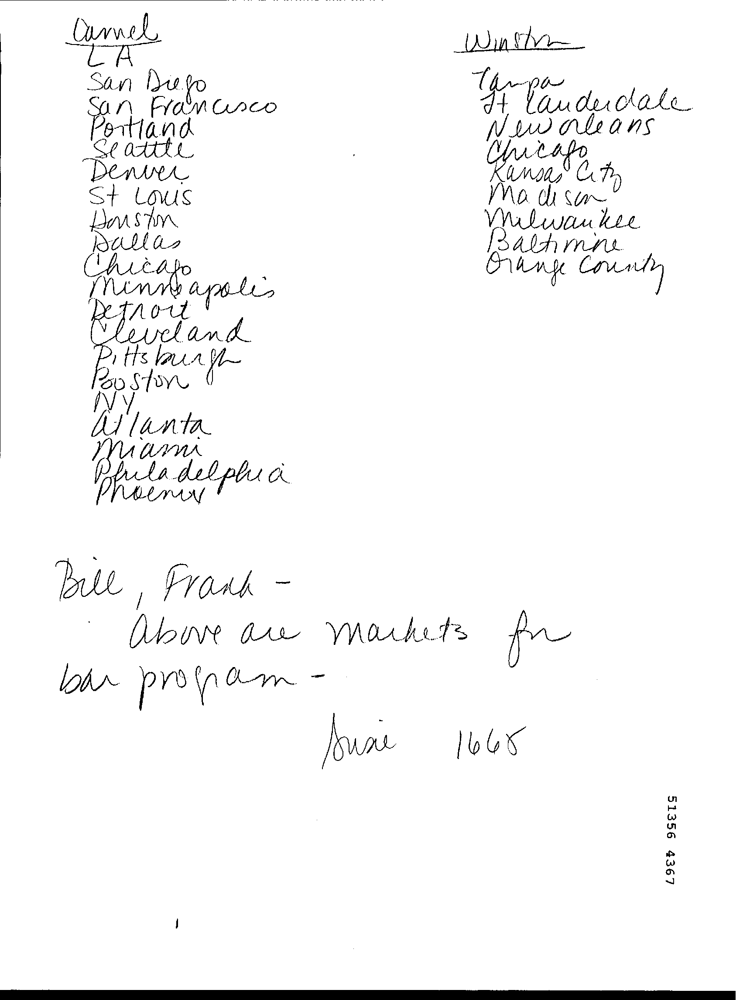 Camel
LA
San Diego
San Francisco
Portland
Seattle
Denver
St Louis
Houston
Dallas
Chicago
Minneapolis
Detroit
Cleveland
Pittsburgh
Boston
NY
Atlanta
Miami
Philadelphia
Phoenix
Winston
Tampa
Ft Lauderdale
New Orleans
Chicago
Kansas City
Madison
Milwaukee
Baltimore
Orange County
Bill, Frank -
Above are markets for
bar program -
Susie 1668
51356 4367